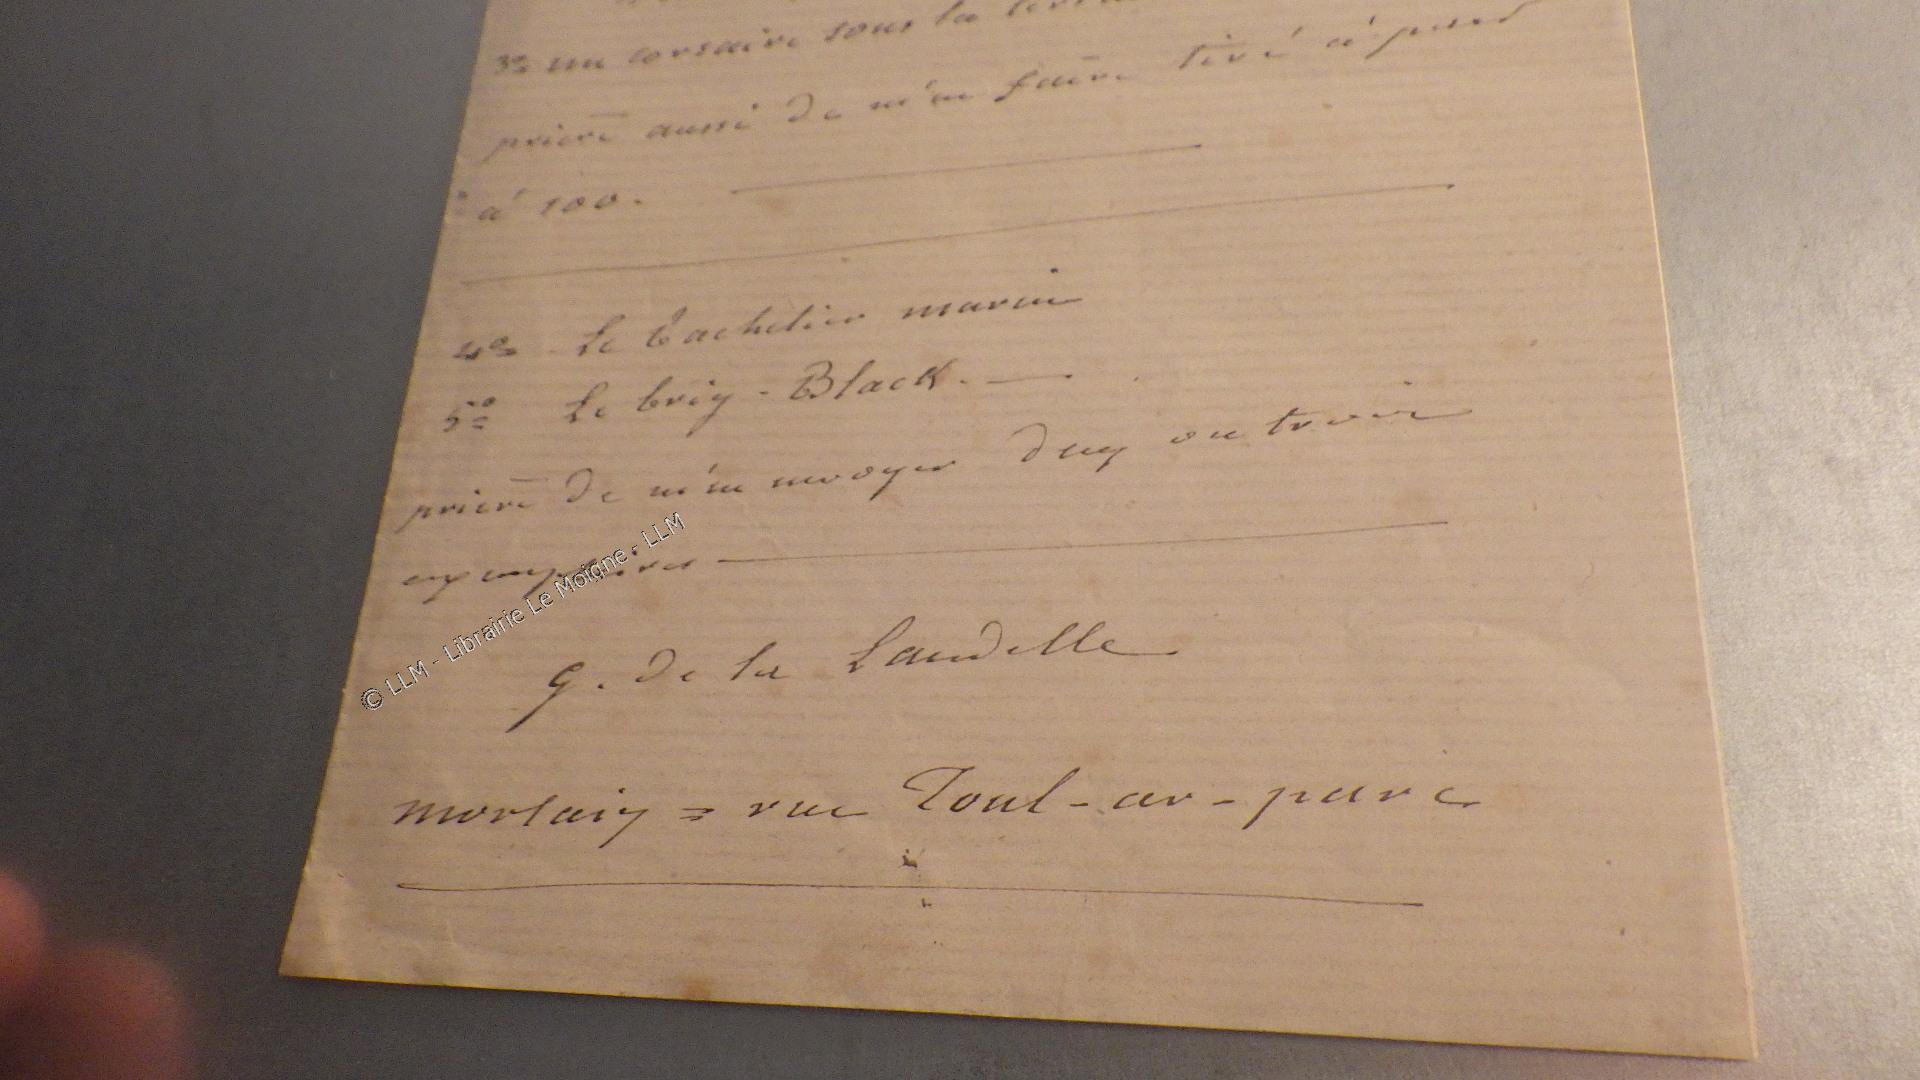 3º un corsaire sous la
prière aussi de m'en faire tiré à part
à 100.
4º Le bachelier marin
5º Le brig - Black.
prière de m'en envoyer deux ou trois
exemplaires
G. de la Landelle
morlaix = rue Poul-ar-parc
© LLM - Librairie Le Moigne - LLM